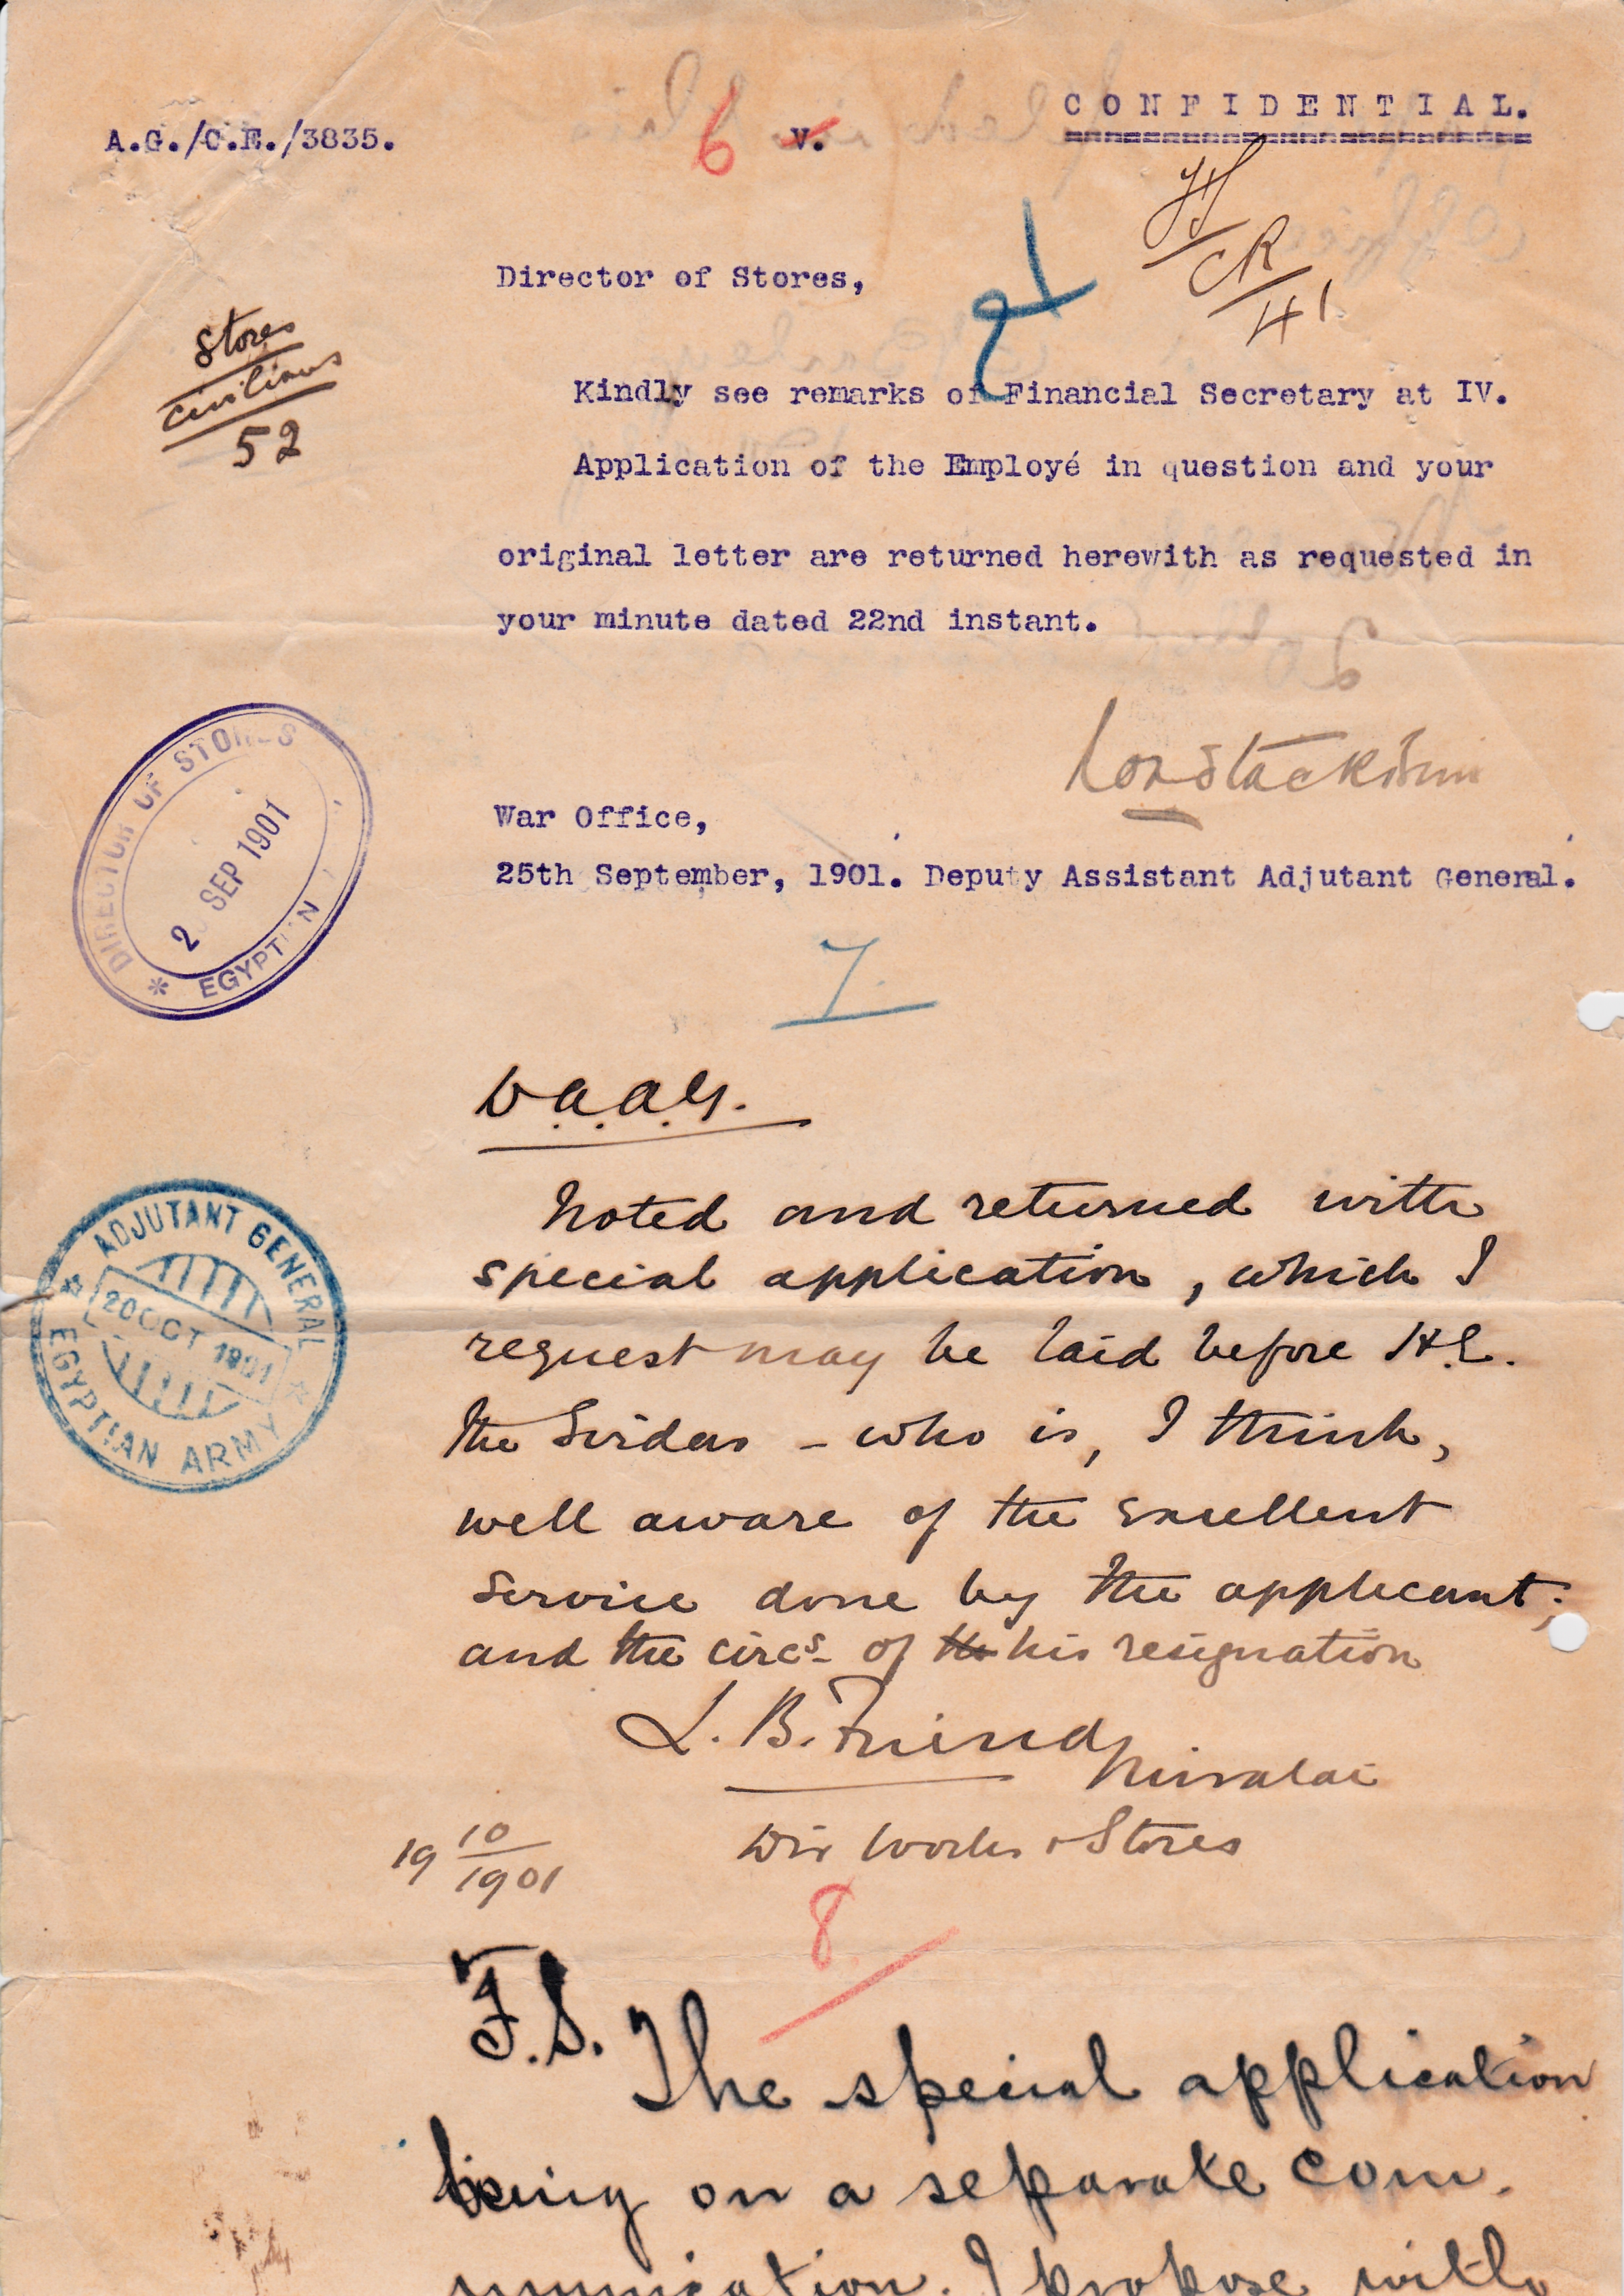 CONFIDENTIAL.
A.G./C.E./3835.
6 V.
HS
CR
41
Director of Stores,
Stores
Civilians
52
Kindly see remarks of Financial Secretary at IV.
Application of the Employé in question and your
original letter are returned herewith as requested in
your minute dated 22nd instant.
War Office,
25th September, 1901. Deputy Assistant Adjutant General.
DIRECTOR OF STORES
2 SEP 1901
* EGYPTIAN
7.
D.A.A.G.
Noted and returned with
special application, which I
request may be laid before H.E.
the Sirdar - who is, I think,
well aware of the excellent
service done by the applicant;
and the circs of the his resignation
L. B. Friend
Miralai
Dir Works & Stores
19 10/1901
ADJUTANT GENERAL
20 OCT 1901
EGYPTIAN ARMY
8.
F.S. The special application
being on a separate com-
munication. I propose with